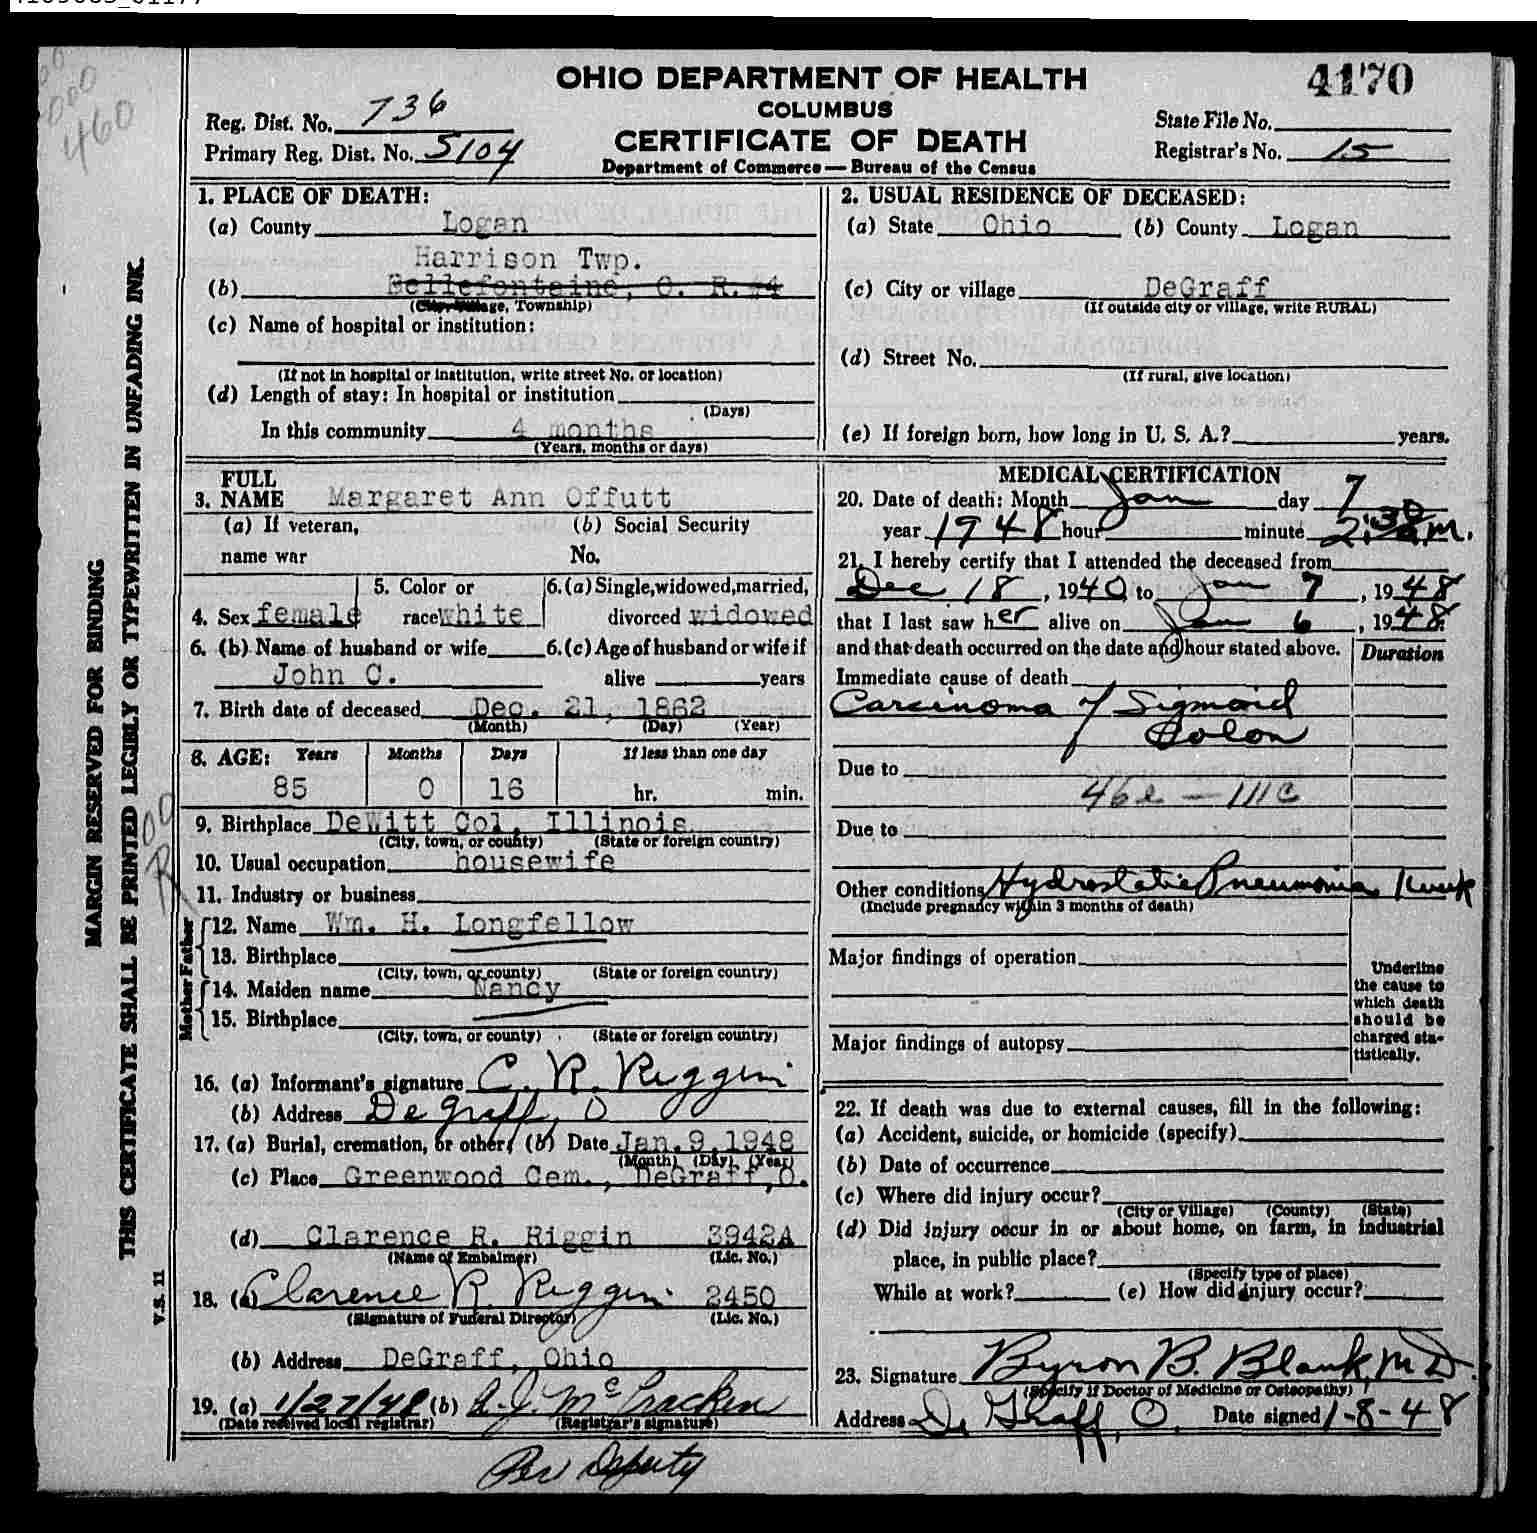 OHIO DEPARTMENT OF HEALTH
COLUMBUS
CERTIFICATE OF DEATH
Department of Commerce — Bureau of the Census
4170
Reg. Dist. No. 736
Primary Reg. Dist. No. 5104
State File No.
Registrar's No. 15
460
MARGIN RESERVED FOR BINDING
THIS CERTIFICATE SHALL BE PRINTED LEGIBLY OR TYPEWRITTEN IN UNFADING INK.
V.S. 11
1. PLACE OF DEATH:
(a) County Logan
Harrison Twp.
(b) Bellefontaine, O. R. #4
(City, Village, Township)
(c) Name of hospital or institution:
(If not in hospital or institution, write street No. or location)
(d) Length of stay: In hospital or institution
(Days)
In this community 4 months
(Years, months or days)
2. USUAL RESIDENCE OF DECEASED:
(a) State Ohio (b) County Logan
(c) City or village DeGraff
(If outside city or village, write RURAL)
(d) Street No.
(If rural, give location)
(e) If foreign born, how long in U. S. A.? years.
FULL
3. NAME Margaret Ann Offutt
(a) If veteran, (b) Social Security
name war No.
5. Color or 6. (a) Single, widowed, married,
4. Sex female race white divorced widowed
6. (b) Name of husband or wife 6. (c) Age of husband or wife if
John C. alive years
7. Birth date of deceased Dec. 21, 1862
(Month) (Day) (Year)
8. AGE: Years Months Days If less than one day
85 0 16 hr. min.
9. Birthplace DeWitt Col, Illinois
(City, town, or county) (State or foreign country)
10. Usual occupation housewife
11. Industry or business
Father
12. Name Wm. H. Longfellow
13. Birthplace
(City, town, or county) (State or foreign country)
Mother
14. Maiden name Nancy
15. Birthplace
(City, town, or county) (State or foreign country)
16. (a) Informant's signature C. R. Riggin
(b) Address De Graff, O
17. (a) Burial, cremation, or other, (b) Date Jan. 9, 1948
(Month) (Day) (Year)
(c) Place Greenwood Cem., DeGraff, O.
(d) Clarence R. Riggin 3942A
(Name of Embalmer) (Lic. No.)
18. (a) Clarence R. Riggin 2450
(Signature of Funeral Director) (Lic. No.)
(b) Address DeGraff, Ohio
19. (a) 1/27/48 (b) A. J. McCracken
(Date received local registrar) (Registrar's signature)
Per Deputy
MEDICAL CERTIFICATION
20. Date of death: Month Jan day 7
year 1948 hour minute 2:30 a.m.
21. I hereby certify that I attended the deceased from
Dec 18, 1940 to Jan 7, 1948
that I last saw her alive on Jan 6, 1948
and that death occurred on the date and hour stated above. Duration
Immediate cause of death
Carcinoma of Sigmoid
Colon
Due to
46e — 111c
Due to
Other conditions Hydrostatic Pneumonia 1 week
(Include pregnancy within 3 months of death)
Major findings of operation
Major findings of autopsy
Underline
the cause to
which death
should be
charged sta-
tistically.
22. If death was due to external causes, fill in the following:
(a) Accident, suicide, or homicide (specify)
(b) Date of occurrence
(c) Where did injury occur?
(City or Village) (County) (State)
(d) Did injury occur in or about home, on farm, in industrial
place, in public place?
(Specify type of place)
While at work? (e) How did injury occur?
23. Signature Byron B. Blank, M D.
(Specify if Doctor of Medicine or Osteopathy)
Address De Graff, O. Date signed 1-8-48